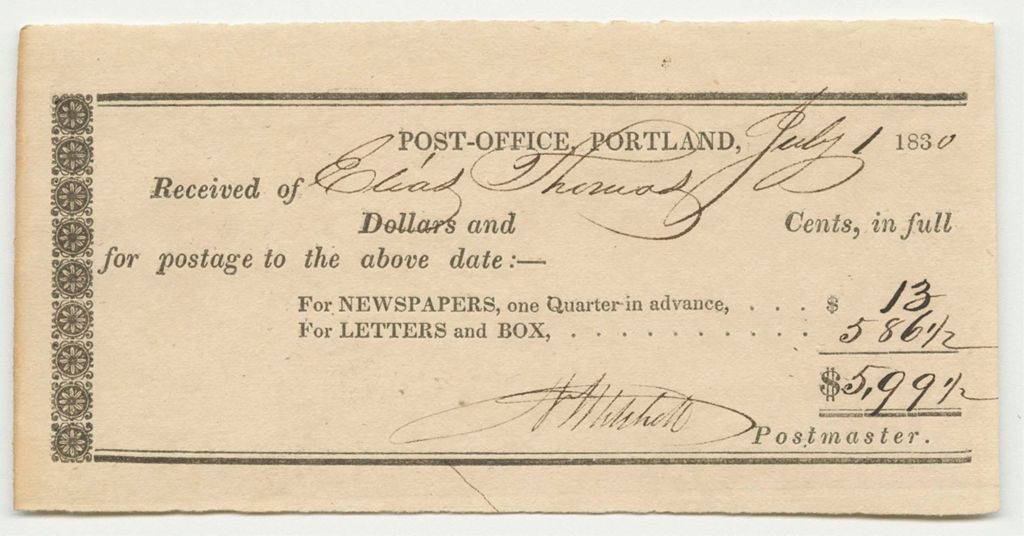 POST-OFFICE, PORTLAND, July 1 1830
Received of Elias Thomas
Dollars and Cents, in full
for postage to the above date:—
For NEWSPAPERS, one Quarter in advance, . . . . $ 13
For LETTERS and BOX, . . . . . . . . . . . 5 86 1/2
$5,99 1/2
N Mitchell
Postmaster.